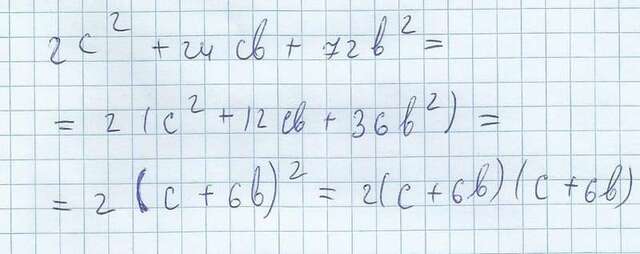 2c² + 24cb + 72b² =
= 2(c² + 12cb + 36b²) =
= 2(c + 6b)² = 2(c + 6b)(c + 6b)